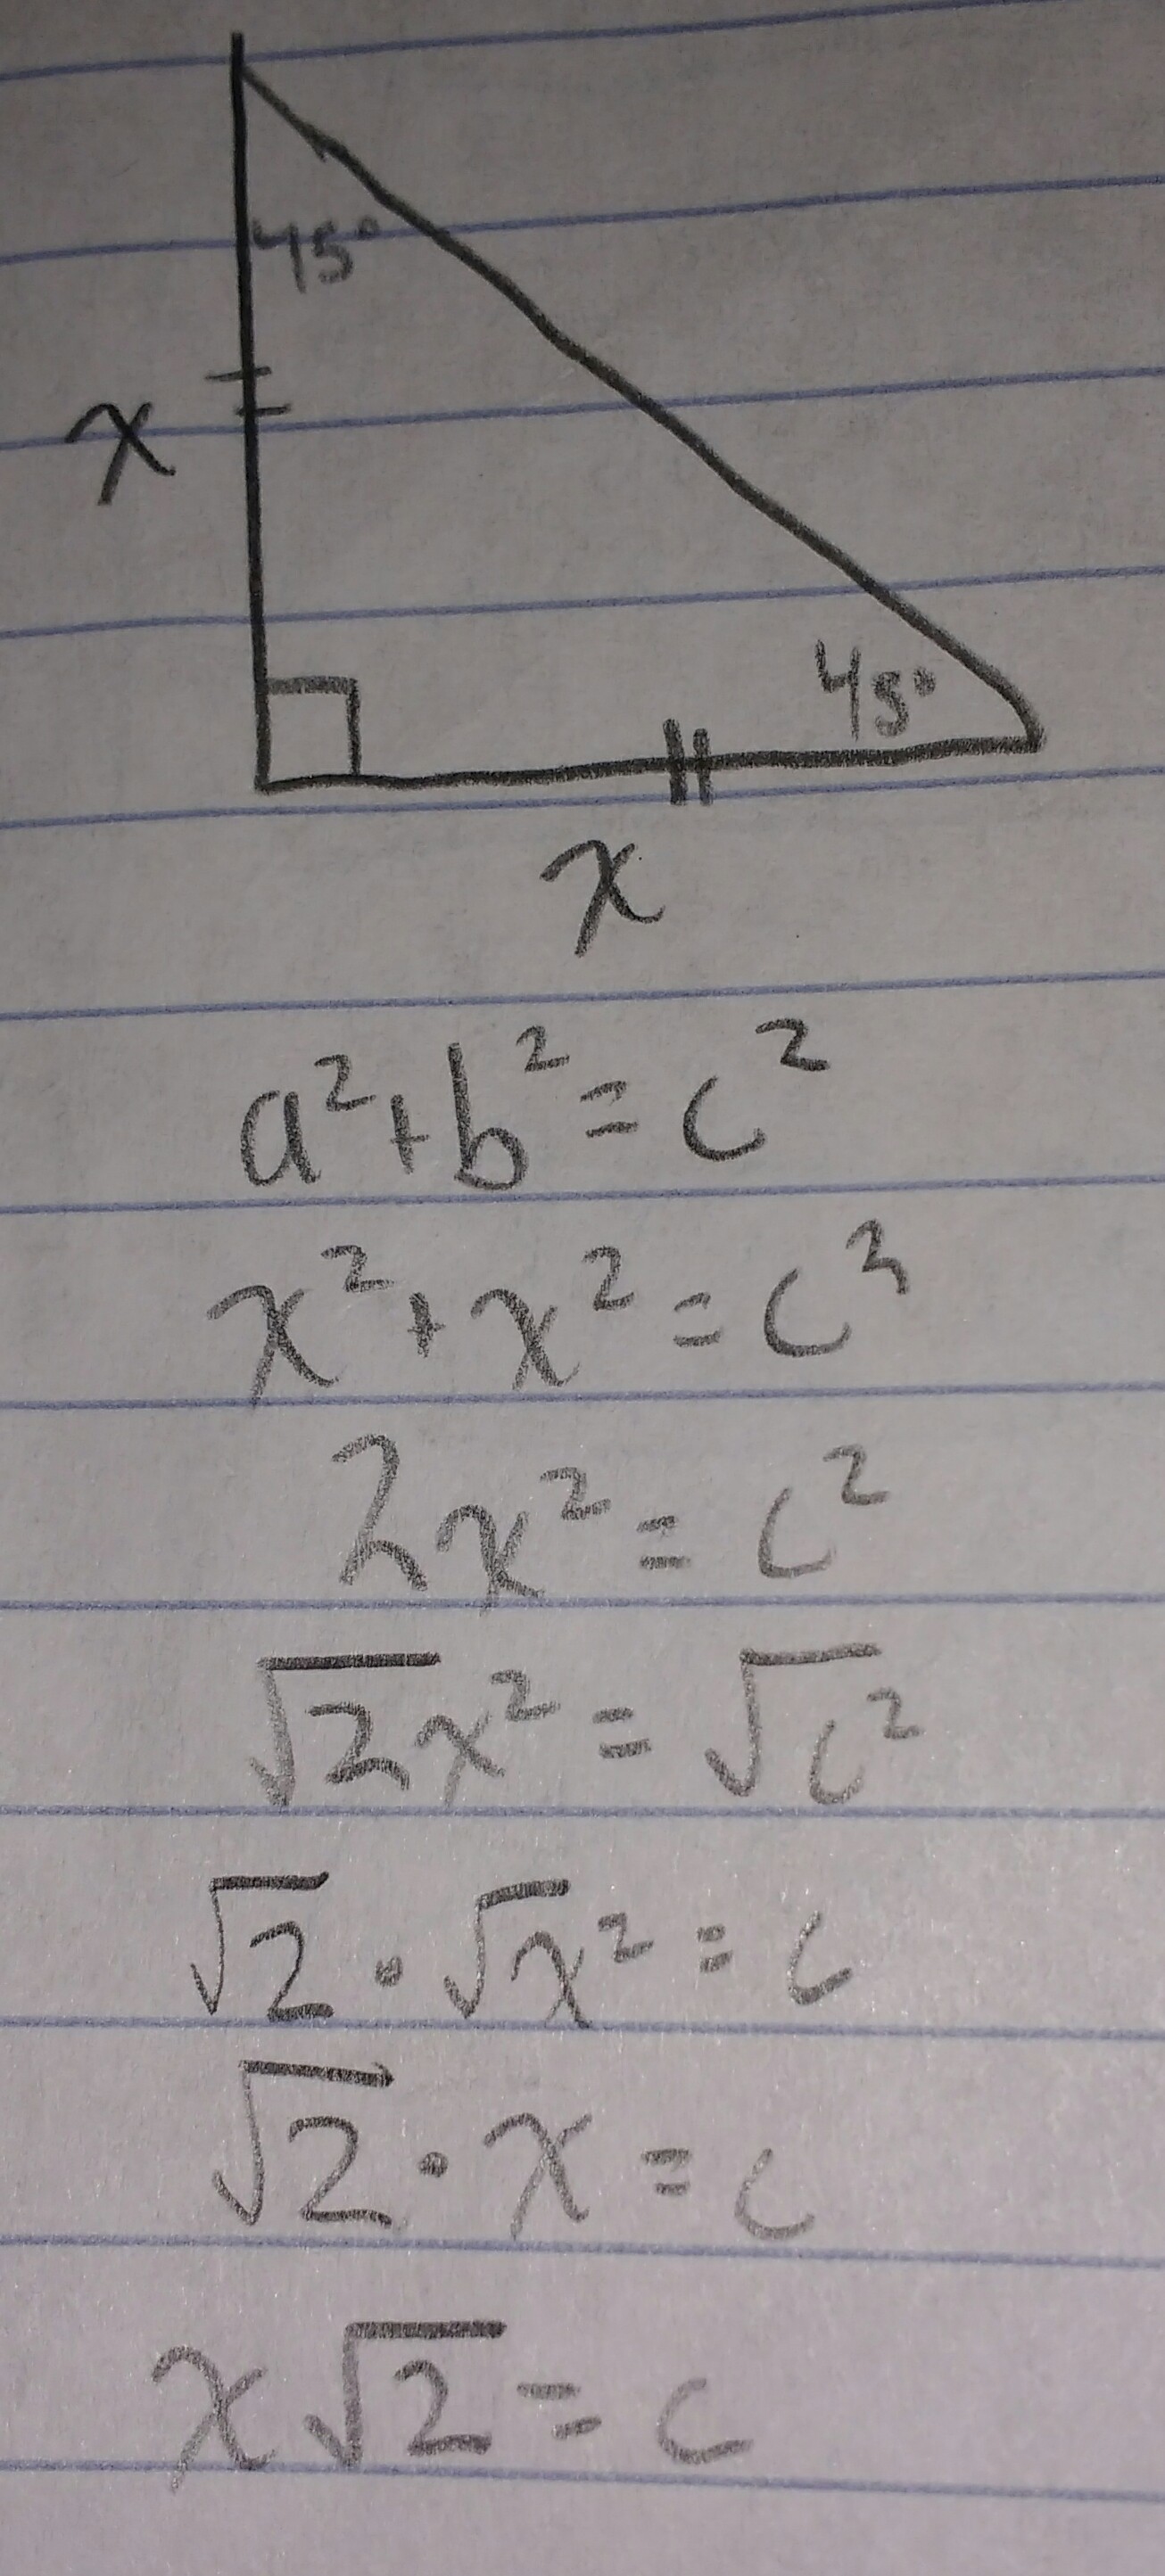 45°
x
45°
x
a²+b²=c²
x²+x²=c²
2x²=c²
√2x²=√c²
√2·√x²=c
√2·x=c
x√2=c